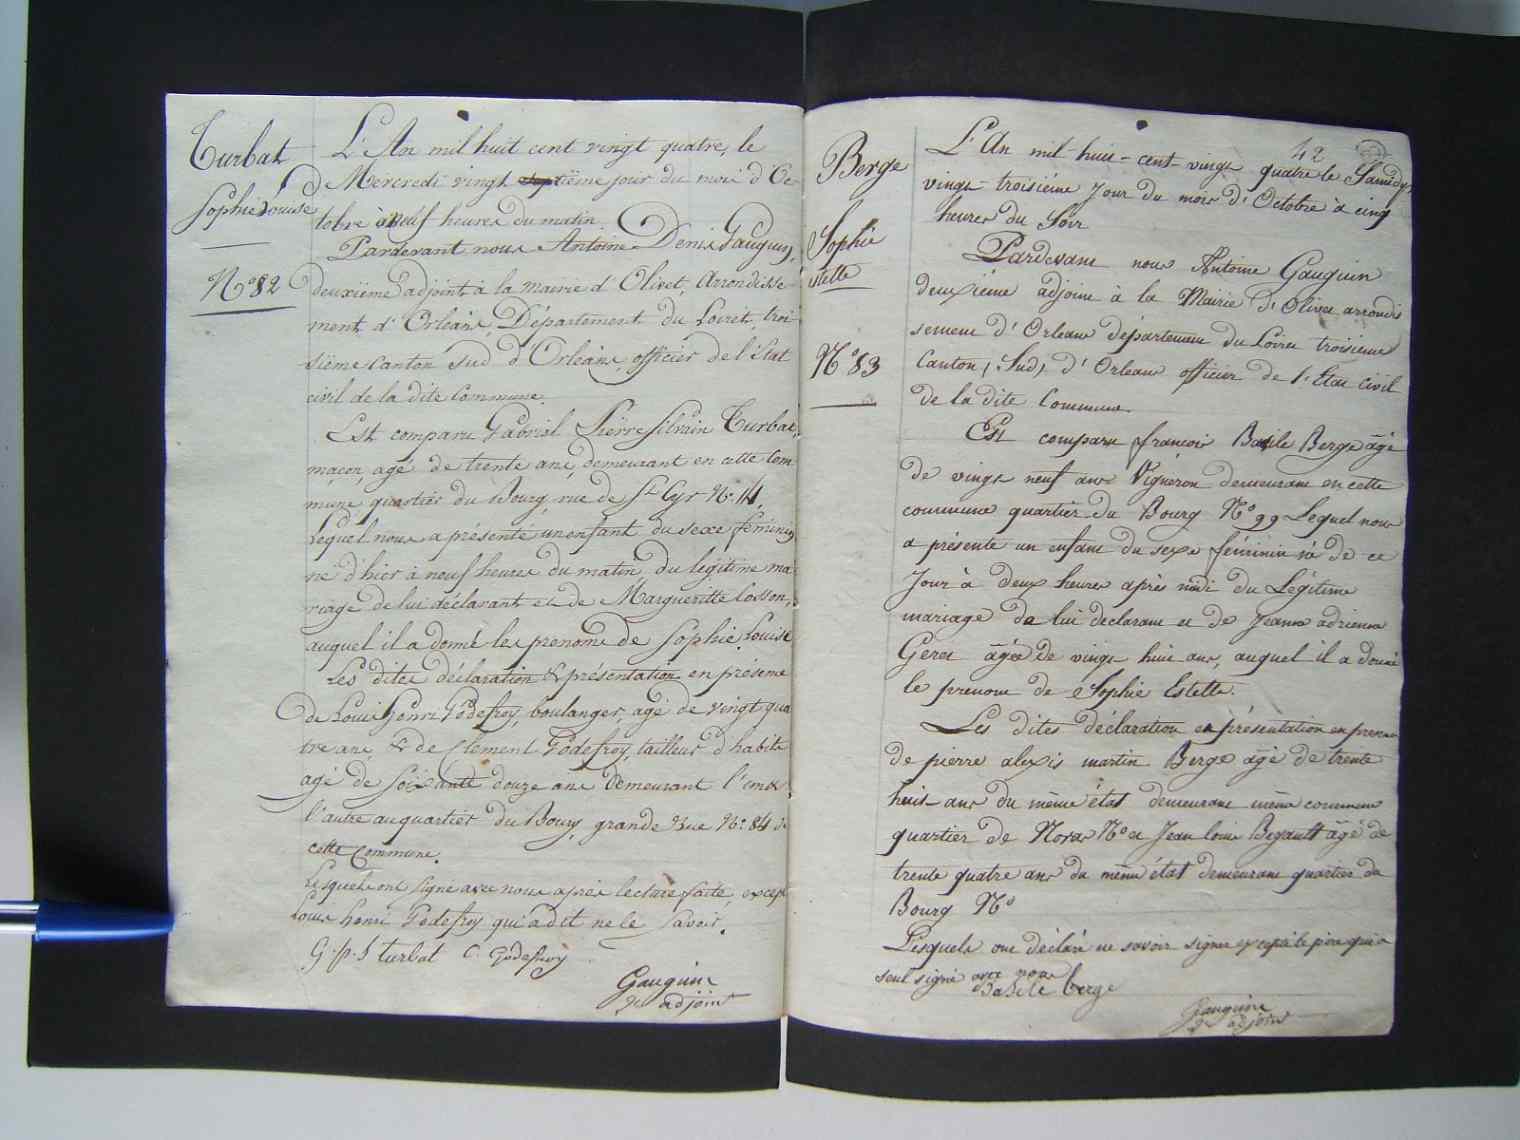 Turbat
Sophie Louise
N° 82
L'An mil huit cent vingt quatre, le
Mercredi vingt ième jour du mois d'Oc-
tobre à neuf heures du matin.
Pardevant nous Antoine Denis Gauguin,
deuxième adjoint à la mairie d'Olivet, Arrondisse-
ment d'Orléans, Département du Loiret, troi-
sième canton sud d'Orléans, officier de l'état
civil de la dite commune.
Est comparu Gabriel Pierre Silvain Turbat,
maçon, agé de trente ans, demeurant en cette com
mune, quartier du Bourg, rue de St Cyr N° 14,
Lequel nous a présenté un enfant du sexe féminin
né d'hier à neuf heures du matin, du légitime ma-
riage de lui déclarant et de Margueritte Cosson,
auquel il a donné les prenoms de Sophie Louise
Les dites déclaration & présentation en présence
de Louis henri Godefroy, boulanger, agé de vingt qua
tre ans & de Clement Godefroy, tailleur d'habits
agé de soixante douze ans demeurant l'un &
l'autre au quartier du Bourg, grande Rue N° 84 de
cette Commune.
Lesquels ont signé avec nous après lecture faite, except
Louis henri Godefroy qui a dit ne le savoir.
G. p. S turbat C. Godefroy
Gauguin
2e adjoint
42
Berge
Sophie
estelle
N° 83
L'An mil-huit-cent-vingt quatre le Samedy,
vingt-troisième Jour du mois d'Octobre à cinq
heures du Soir
Pardevant nous Antoine Gauguin
deuxième adjoint à la Mairie d'Olivet arrondis
sement d'Orleans département du Loiret troisieme
Canton, Sud, d'Orleans officier de l'Etat civil
de la dite Commune.
Est comparu francois Basile Berge âgé
de vingt neuf ans Vigneron demeurant en cette
commune quartier du Bourg N° 99 Lequel nous
a présenté un enfant du sexe féminin né de ce
Jour à deux heures après midi du Légitime
mariage de lui declarant et de Jeanne adrienne
Geret âgée de vingt huit ans, auquel il a donné
le prenom de Sophie Estelle.
Les dites déclaration et présentation en presence
de pierre alexis martin Berge âgé de trente
huit ans du même état demeurant même commune
quartier de Noras N° et Jean louis Begault âgé de
trente quatre ans du même état demeurant quartier du
Bourg N°
Lesquels ont déclaré ne savoir signer excepté le père qui a
seul signé avec nous
Basile berge
Gauguin
2e adjoint